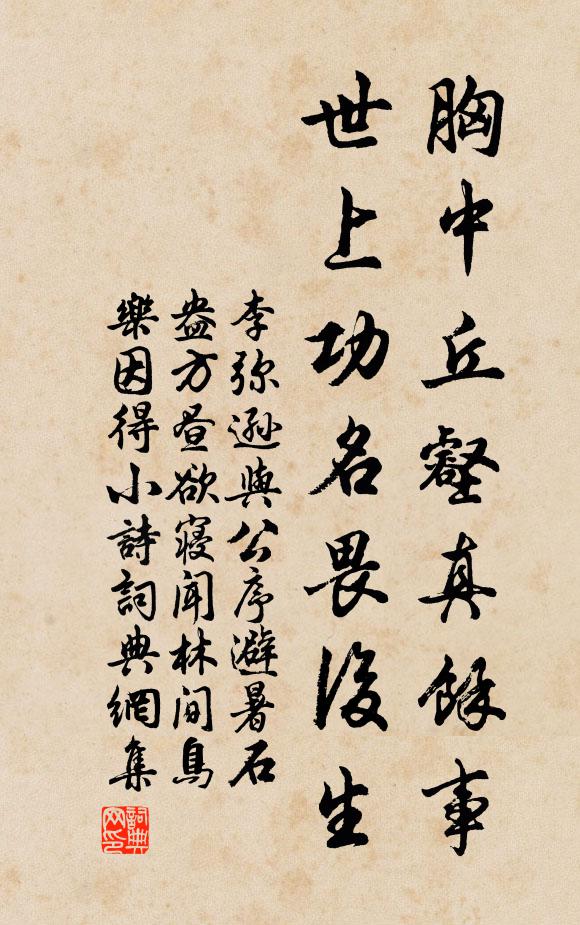 胸中丘壑真餘事
世上功名畏後生
李弥遜與公序避暑石
盎方昼欲寝聞林間鳥
樂因得小詩詞典網集
詞典
网印